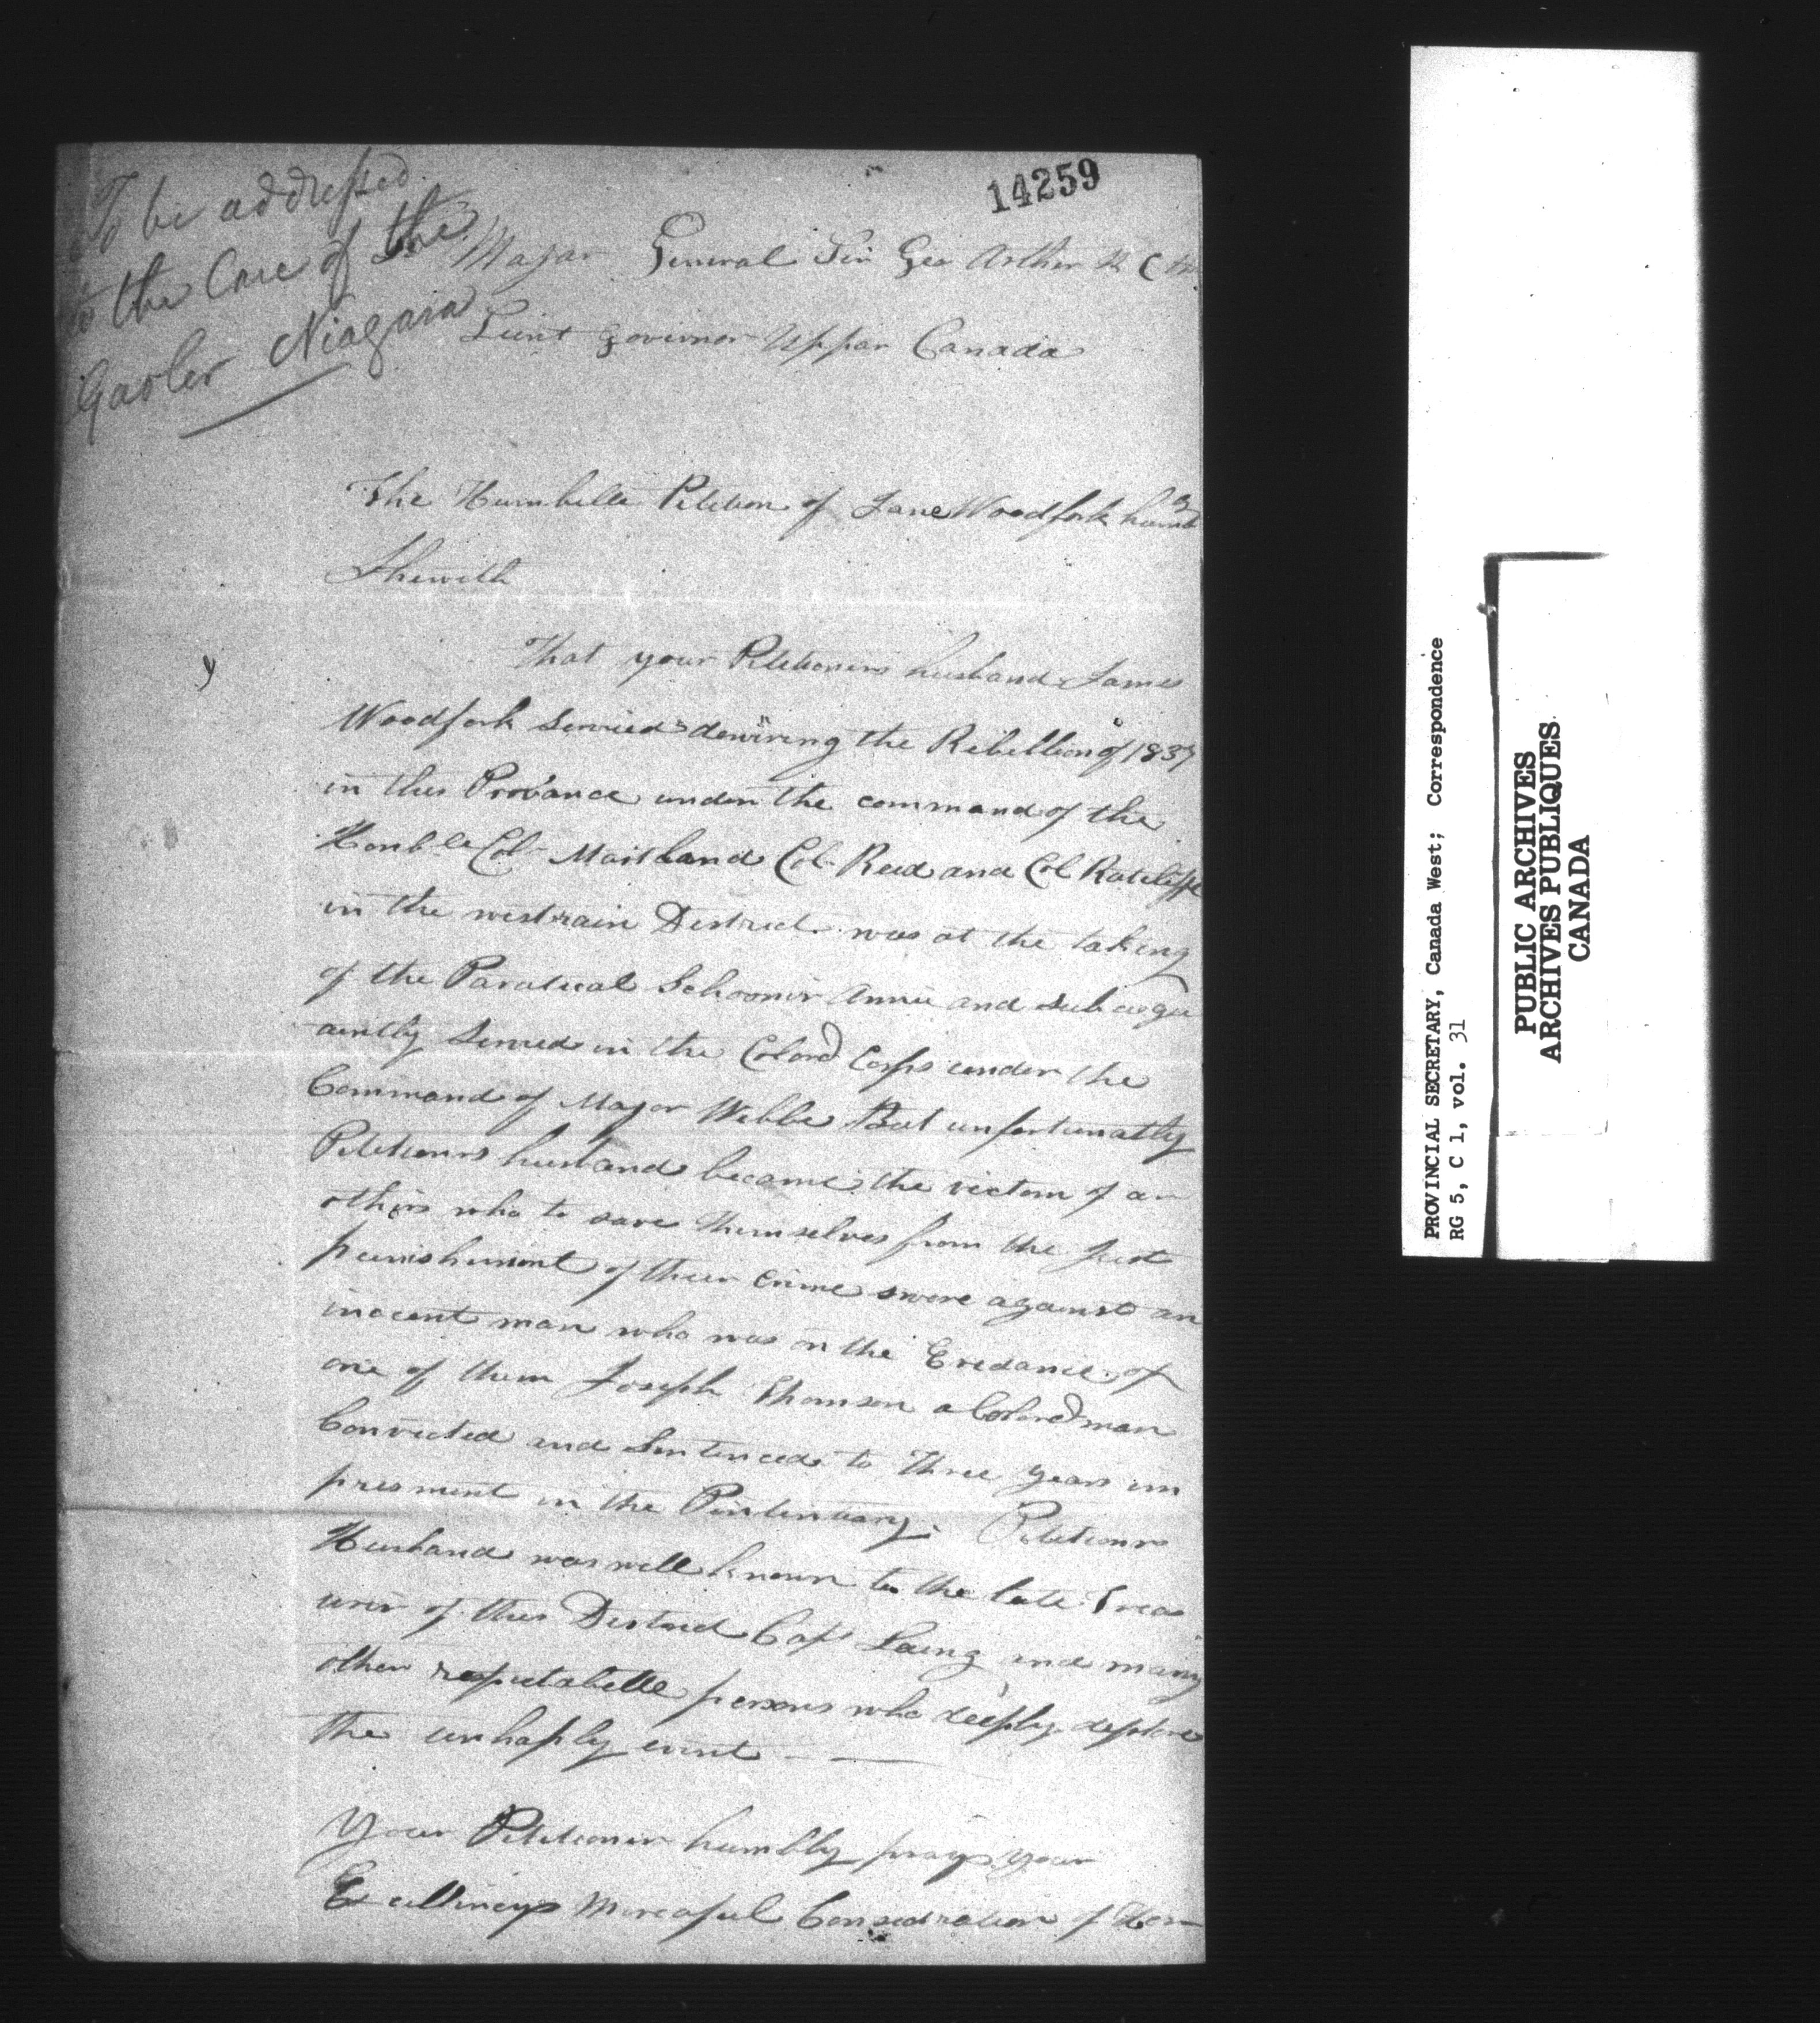 14259
To be addressed
to the Care of the
Gaoler Niagara
Majar General Sir Geo Arthur K C
Leint Governor Uppar Canada
The Humbelle Petition of Jane Woodfork
Shewith
That your Petitioners husband James
Woodfork Servied dewiring the Rebellion of 1837
in this Provance under the command of the
Honble Col Maitland Col Reed and Col Ratcliffe
in the westrain Destrict was at the taking
of the Paratical Schooner Annie and subcequ
aintly Served in the Colord Corps under the
Command of Major Webbe But unfortunatly
Petitioners husband became the victom of an
others who to save themselves from the Just
punishment of their crime swore against an
inocent man who was on the Evedance of
one of them Joseph Thomson a Colored man
Convicted and Sentenced to Three years im
presment in the Pintintiary. Petitioners
Husband was well known to the late Treas
urer of this Destrict Capt Laing and many
other respectabelle persons who deeply deplore
the unhaply event
Your Petitioner humbly prays your
Excellineys Merciful Consedration of Her
PROVINCIAL SECRETARY, Canada West; Correspondence
RG 5, C 1, vol. 31
PUBLIC ARCHIVES
ARCHIVES PUBLIQUES
CANADA